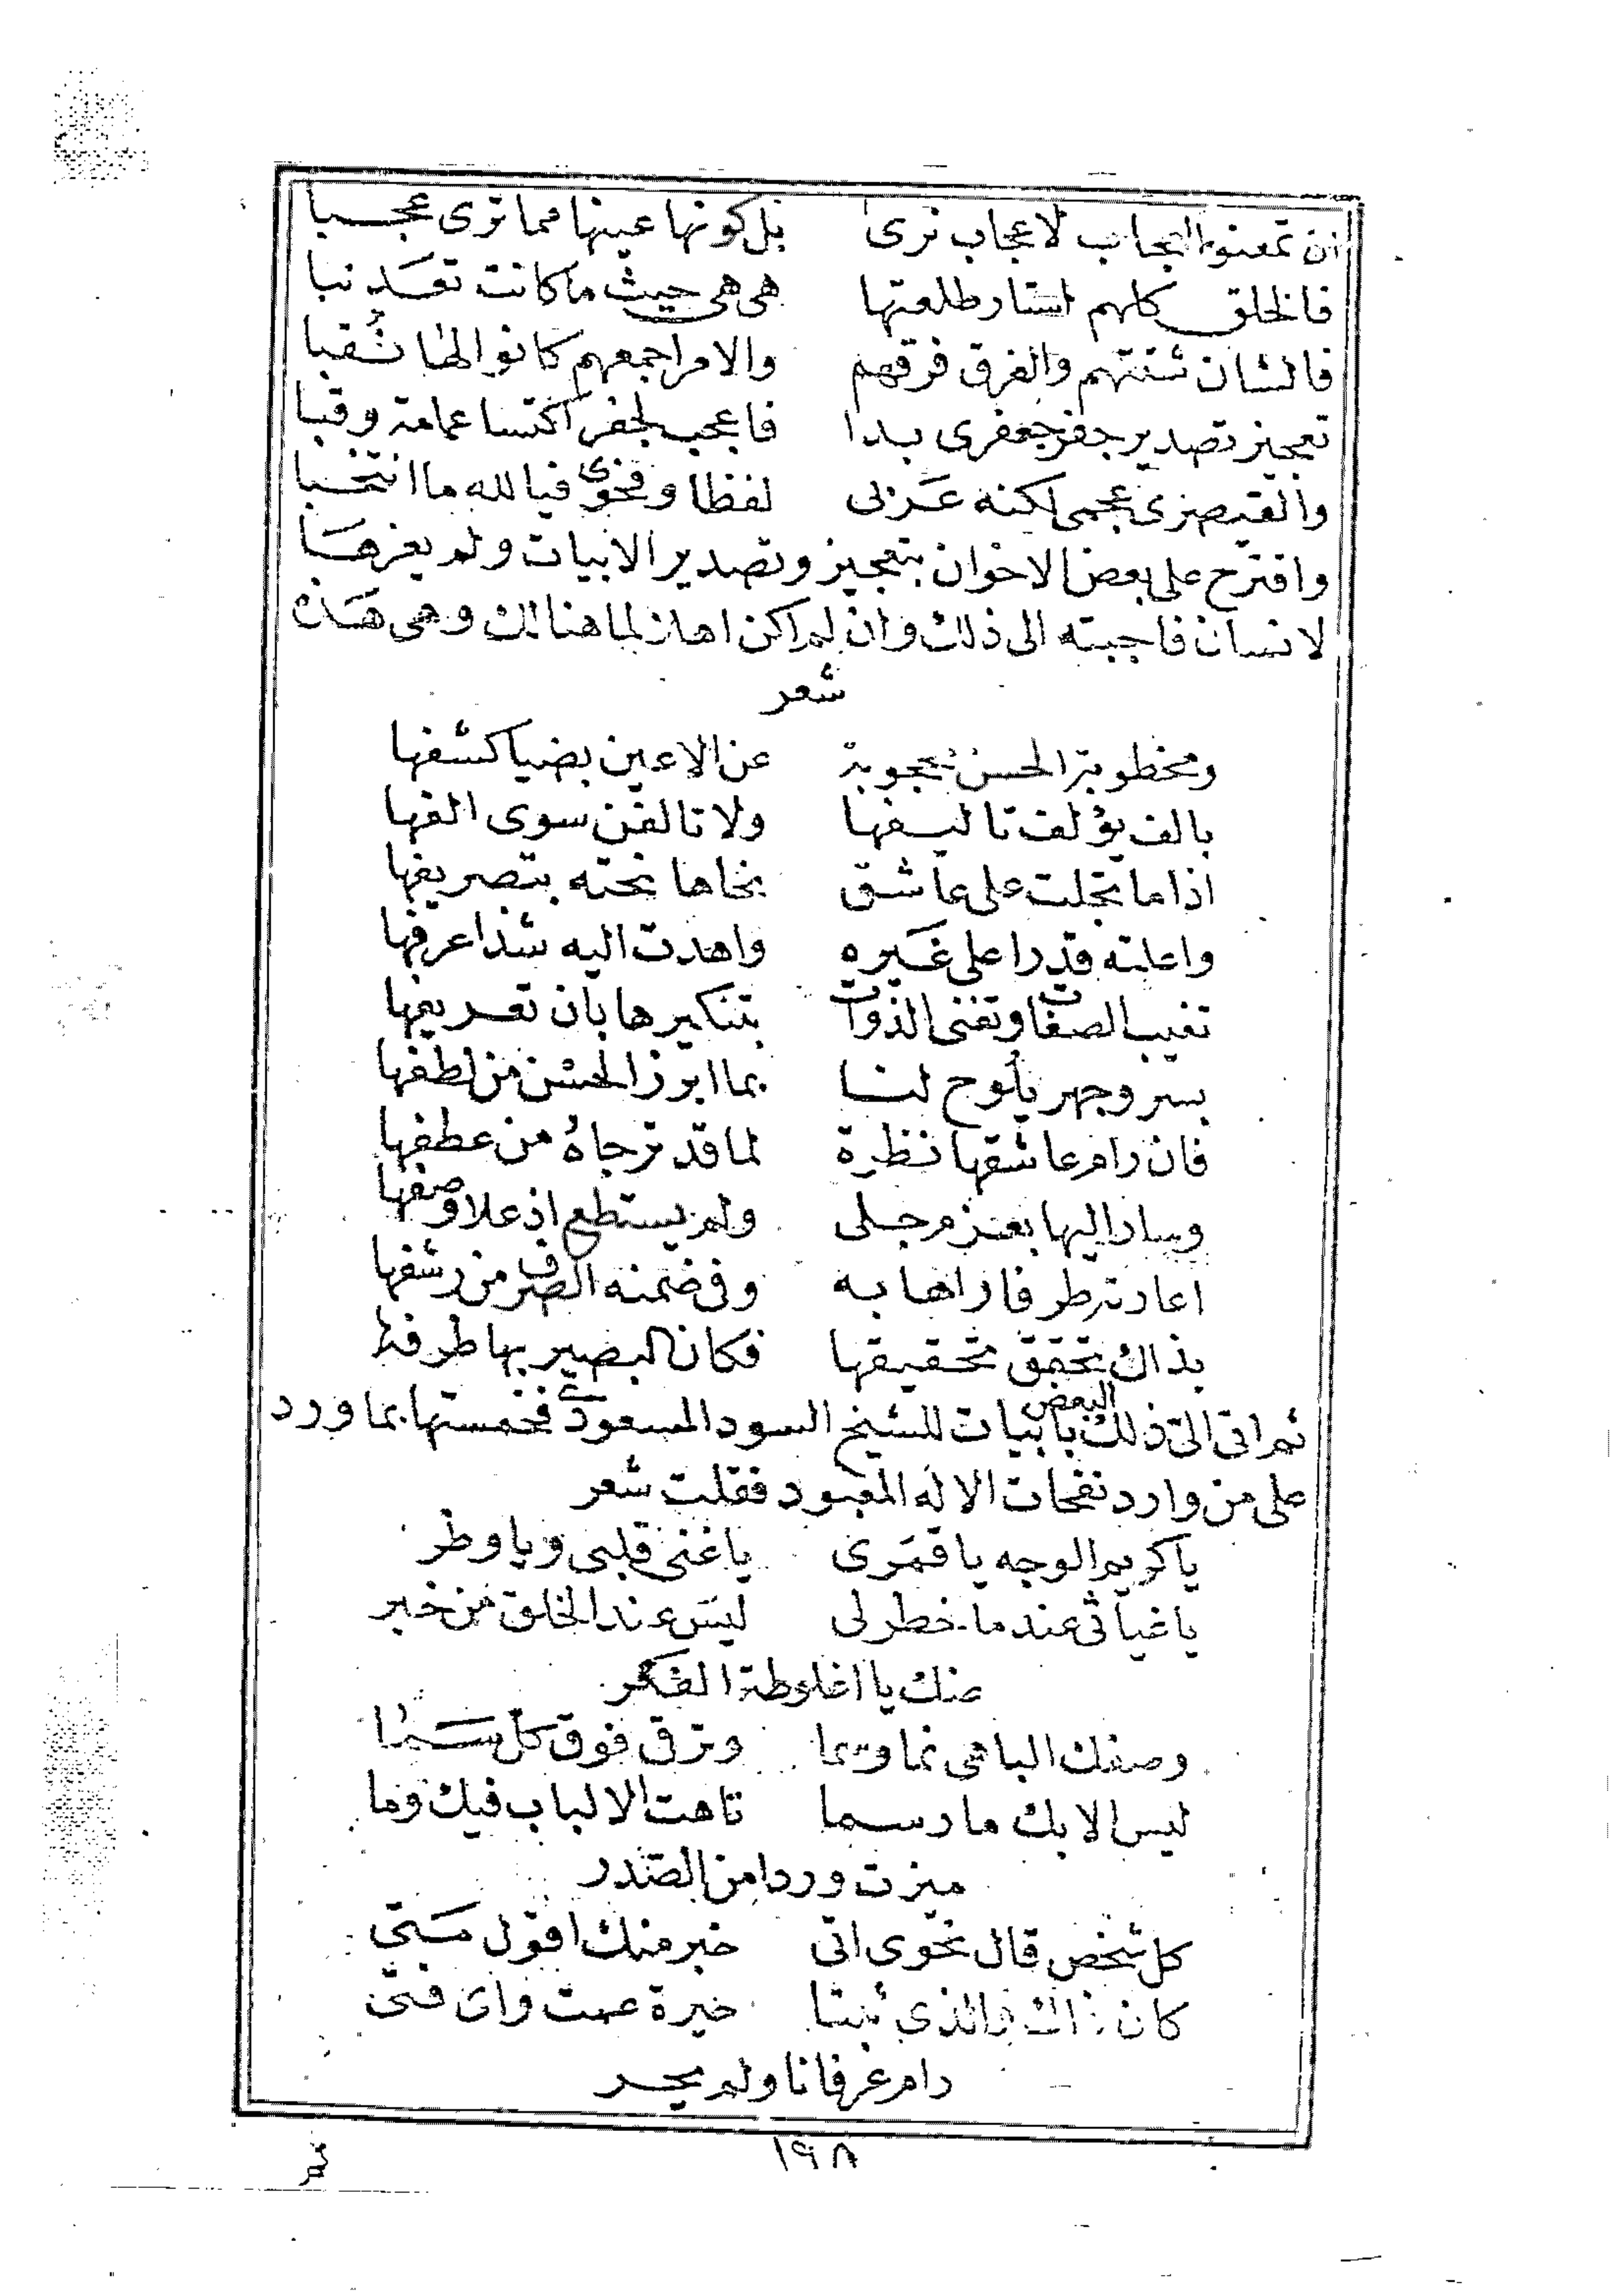 ان تمعنوا العجاب لاعجاب نرى بل كونها عينها مما ترى عجبا
فالخلق كلهم استار طلعتها هى هى حيث ما كانت تعد نبا
فالشان شتتهم والفرق فرقهم والامر اجمعهم كانوا لها نقبا
تعجيز تصدير جفر جعفرى بدا فاعجب لجفر اكتسا عمامة وقبا
والقيصرى عجمى لكنه عربى لفظا وفحوى فيا لله ما انتخبا
واقترح على بعض الاخوان بتعجيز وتصدير الابيات ولم يعزها
لانسان فاجبته الى ذلك وان لم اكن اهلا لما هنالك وهى هذه
شعر
ومخطوبة الحسن محجوبة عن الاعين بضيا كشفها
بالف يؤلف تاليفها ولا تالفن سوى الفها
اذا ما تجلت على عاشق نحاها نحته بتصريفها
واعلته قدرا على غيره واهدت اليه شذا عرفها
تغيب الصفات وتفنى الذوات بتنكيرها بان تعريفها
بسر وجهر يلوح لنا بما ابرز الحسن من لطفها
فان رام عاشقها نظرة لما قد ترجاه من عطفها
وسار اليها بعزم جلى ولم يستطع اذ علا وصفها
اعارته طرفا راها به وفى ضمنه الصرف من رشفها
بذاك تحقق تحقيقها فكان البصير بها طرفها
ثم اتى الى ذلك البعض بابيات للشيخ السود المسعودى فخمستها بما ورد
على من وارد نفحات الاله المعبود فقلت شعر
يا كريم الوجه يا قمرى يا غنى قلبى ويا وطر
يا غياثى عند ما خطر لى ليس عند الخلق من خبر
منك يا اغلوطة الفكر
وصفك الباهى نما وسما وترقى فوق كل سما
ليس الا بك ما رسما تاهت الالباب فيك وما
ميزت وردا من الصدر
كل شخص قال نحوى اتى خبر منك اقول متى
كان ذاك والذى ثبتا حيرة عمت واى فتى
رام عرفانا ولم يحر
١٩٨
ثم